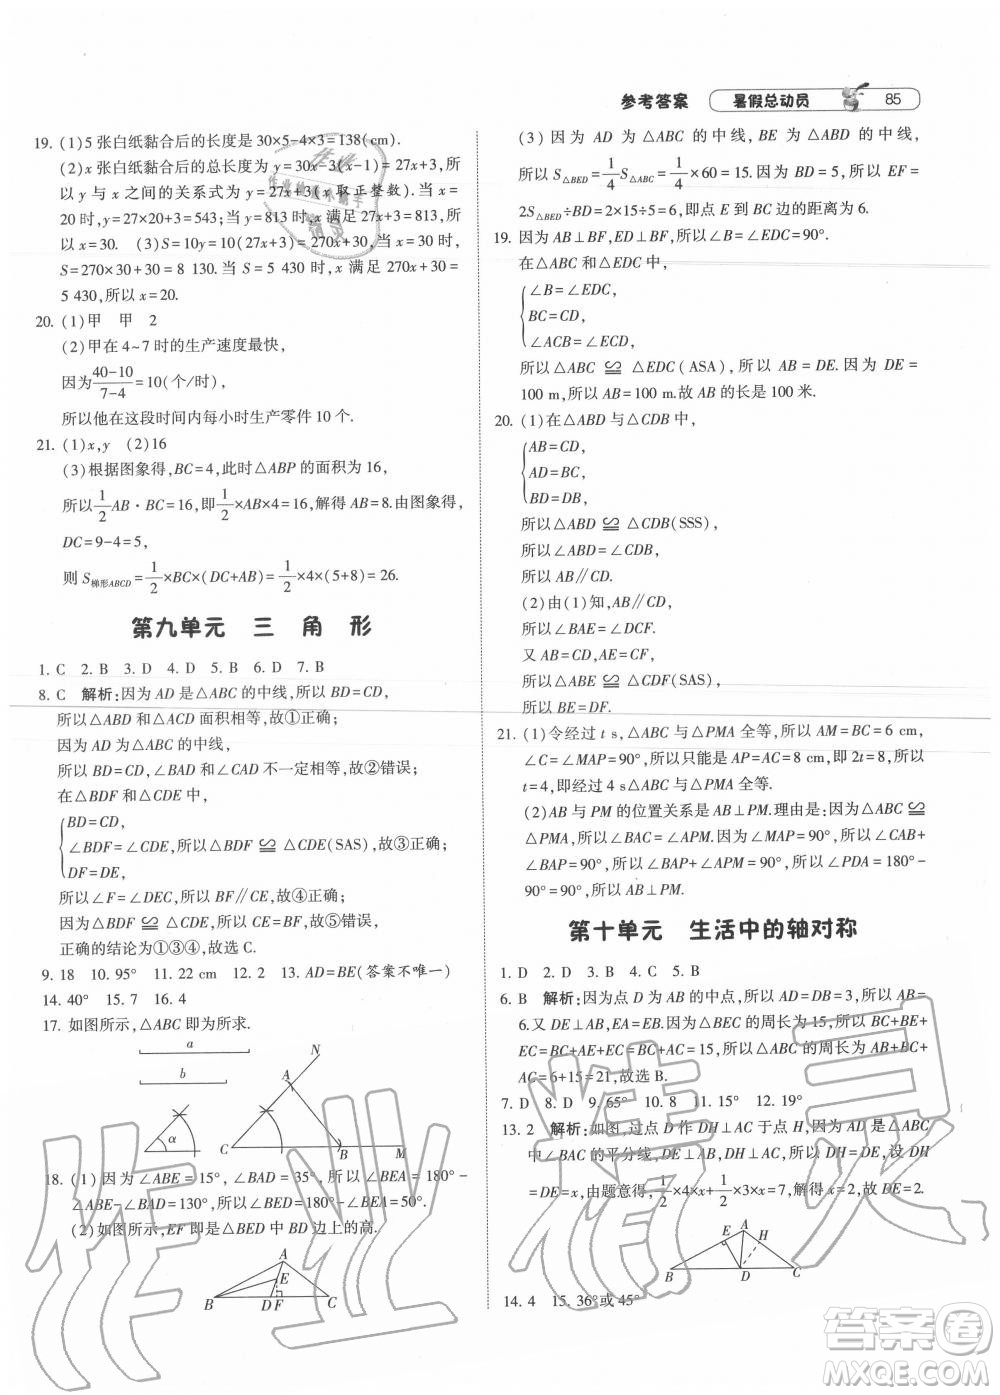 参考答案 暑假总动员 85
19. (1)5 张白纸黏合后的长度是 30×5-4×3=138(cm).
(2)x 张白纸黏合后的总长度为 y=30x-3(x-1)=27x+3,所
以 y 与 x 之间的关系式为 y=27x+3(x 取正整数). 当 x=
20 时,y=27×20+3=543;当 x 满足 27x+3=813 时,所以
x=30. (3)S=10y=10(27x+3)=270x+30;当 x=30 时,
S=270×30+30=8 130. 当 S=5 430 时,x 满足 270x+30=
5 430,所以 x=20.
20. (1)甲 甲 2
(2)甲在 4~7 时的生产速度最快,
因为(40-10)/(7-4)=10(个/时),
所以他在这段时间内每小时生产零件 10 个.
21. (1)x,y (2)16
(3)根据图象得,BC=4,此时△ABP 的面积为 16,
所以1/2AB·BC=16,即1/2×AB×4=16,解得 AB=8.由图象得,
DC=9-4=5,
则 S梯形ABCD=1/2×BC×(DC+AB)=1/2×4×(5+8)=26.
第九单元 三 角 形
1. C 2. B 3. D 4. D 5. B 6. D 7. B
8. C 解析:因为 AD 是△ABC 的中线,所以 BD=CD,
所以△ABD 和△ACD 面积相等,故①正确;
因为 AD 为△ABC 的中线,
所以 BD=CD,∠BAD 和∠CAD 不一定相等,故②错误;
在△BDF 和△CDE 中,
BD=CD,
∠BDF=∠CDE,所以△BDF≌△CDE(SAS),故③正确;
DF=DE,
所以∠F=∠DEC,所以 BF∥CE,故④正确;
因为△BDF≌△CDE,所以 CE=BF,故⑤错误,
正确的结论为①③④,故选 C.
9. 18 10. 95° 11. 22 cm 12. 2 13. AD=BE(答案不唯一)
14. 40° 15. 7 16. 4
17. 如图所示,△ABC 即为所求.
a
b
N
A
α
C B M
18. (1)因为∠ABE=15°,∠BAD=35°,所以∠BEA=180°-
∠ABE-∠BAD=130°,所以∠BED=180°-∠BEA=50°.
(2)如图所示,EF 即是△BED 中 BD 边上的高.
A
E
B D F C
(3)因为 AD 为△ABC 的中线,BE 为△ABD 的中线,
所以 S△BED=1/4S△ABC=1/4×60=15.因为 BD=5,所以 EF=
2S△BED÷BD=2×15÷5=6,即点 E 到 BD 边的距离为 6.
19. 因为 AB⊥BF,ED⊥BF,所以∠B=∠EDC=90°.
在△ABC 和△EDC 中,
∠B=∠EDC,
BC=CD,
∠ACB=∠ECD,
所以△ABC≌△EDC(ASA),所以 AB=DE.因为 DE=
100 m,所以 AB=100 m.故 AB 的长是 100 米.
20. (1)在△ABD 与△CDB 中,
AB=CD,
AD=BC,
BD=DB,
所以△ABD≌△CDB(SSS),
所以∠ABD=∠CDB,
所以 AB∥CD.
(2)由(1)知,AB∥CD,
所以∠BAE=∠DCF.
又 AB=CD,AE=CF,
所以△ABE≌△CDF(SAS),
所以 BE=DF.
21. (1)令经过 t s,△ABC 与△PMA 全等,所以 AM=BC=6 cm,
∠C=∠MAP=90°,所以只能是 AP=AC=8 cm,即 2t=8,所以
t=4,即经过 4 s△ABC 与△PMA 全等.
(2)AB 与 PM 的位置关系是 AB⊥PM.理由是:因为△ABC≌
△PMA,所以∠BAC=∠APM.因为∠MAP=90°,所以∠CAB+
∠BAP=90°,所以∠BAP+∠APM=90°,所以∠PDA=180°-
90°=90°,所以 AB⊥PM.
第十单元 生活中的轴对称
1. D 2. D 3. B 4. C 5. B
6. B 解析:因为点 D 为 AB 的中点,所以 AD=DB=3,所以 AB=
6.又 DE⊥AB,EA=EB.因为△BEC 的周长为 15,所以 BC+BE+
EC=BC+AE+EC=BC+AC=15,所以△ABC 的周长为 AB+BC+
AC=6+15=21,故选 B.
7. D 8. D 9. 65° 10. 8 11. 15° 12. 19°
13. 2 解析:如图,过点 D 作 DH⊥AC 于点 H,因为 AD 是△ABC
中∠BAC 的平分线,DE⊥AB,DH⊥AC,所以 DE=DH,设 DH
=DE=x,由题意得,1/2×4×x+1/2×3×x=7,解得 x=2,故 DE=2.
A
E H
B D C
14. 4 15. 36°或 45°
作业精灵
答案圈
MXQE.COM